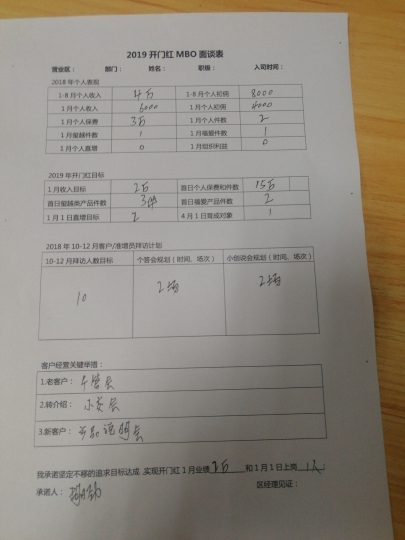 2019开门红MBO面谈表
营业区： 部门： 姓名： 职级： 入司时间：
2018年个人表现
1-8月个人收入 4万 1-8月个人初佣 8000
1月个人收入 6000 1月个人初佣 4000
1月个人保费 3万 1月个人件数 2
1月玺越件数 1 1月福爱件数 1
1月个人直增 0 1月组织利益 0
2019年开门红目标
1月收入目标 2万 首日个人保费和件数 15万
首日玺越类产品件数 3件 首日福爱产品件数 2
1月1日直增目标 2 4月1日育成对象 1
2018年10-12月客户/准增员拜访计划
10-12月拜访人数目标 个答会规划（时间、场次） 小创说会规划（时间、场次）
10 2场 2场
客户经营关键举措：
1.老客户： 个答会
2.转介绍： 小交会
3.新客户： 说明会
我承诺坚定不移的追求目标达成,实现开门红1月业绩 2万 和1月1日上岗 1人
承诺人： 区经理见证：